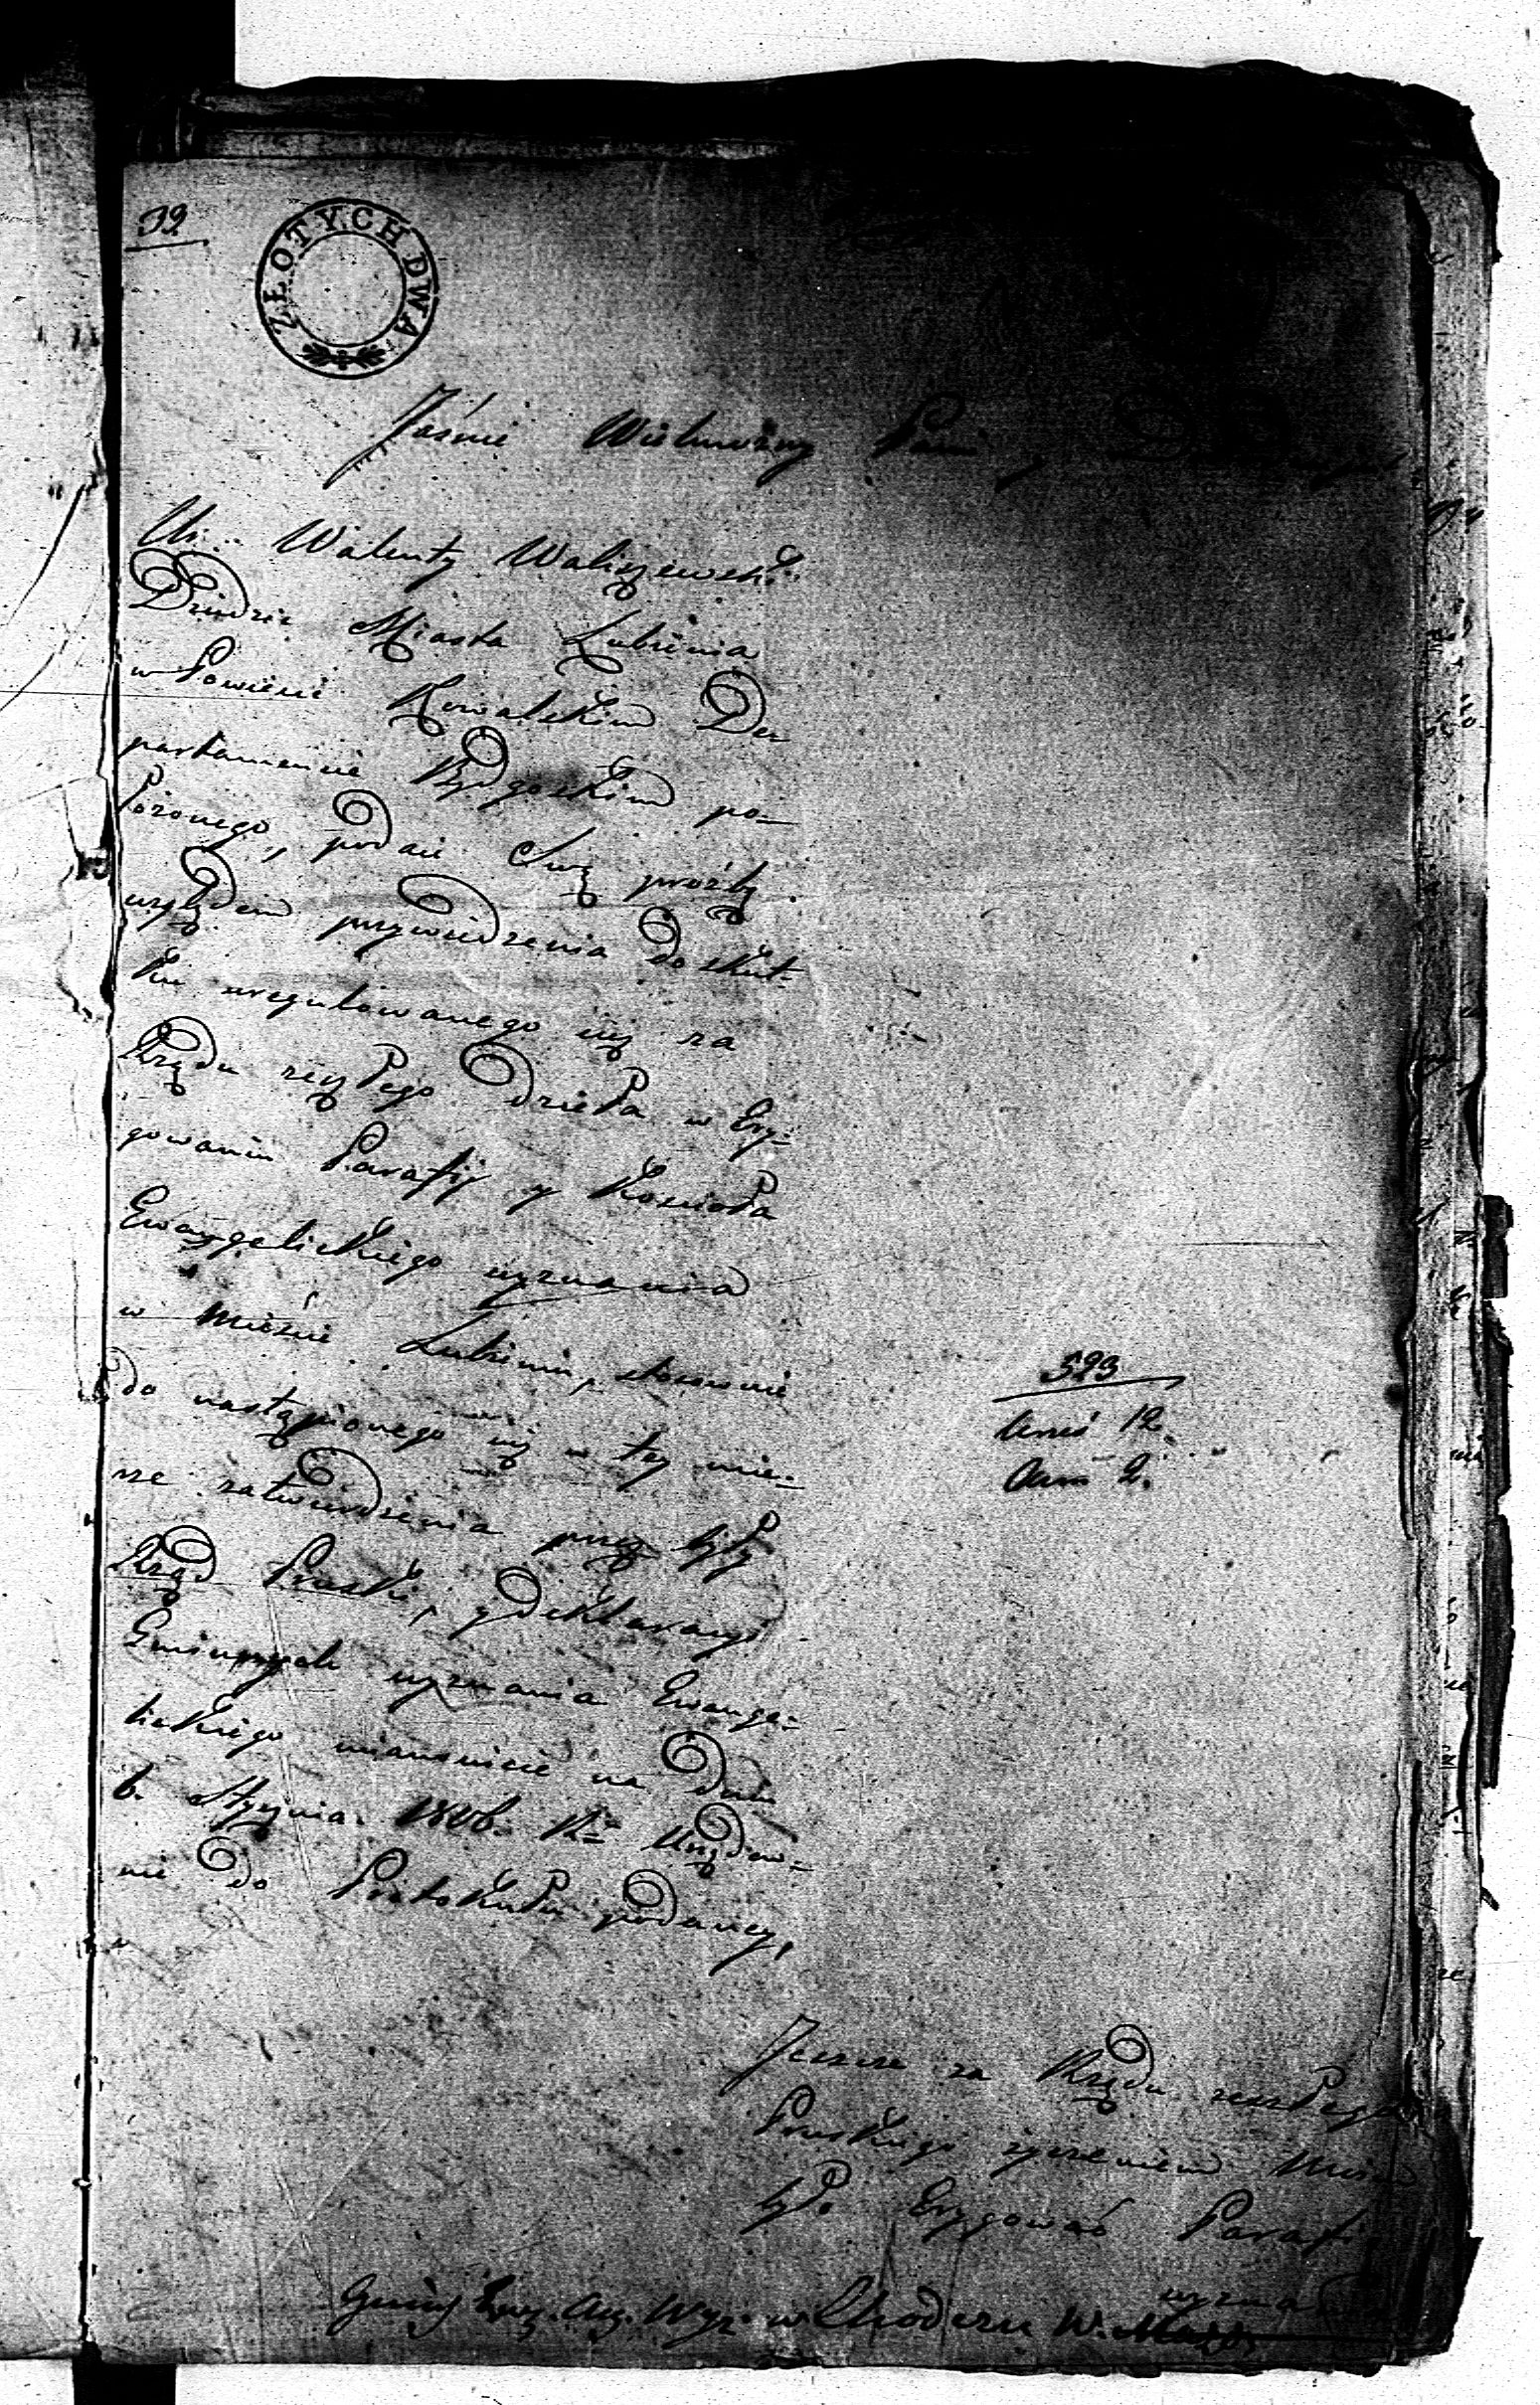 39
ZŁOTYCH DWA
Jaśnie Wielmożny Panie
Ur: Walenty Waliszewski
Dziedzic Miasta Lubienia
w Powiecie Kowalskim De
partamencie Bydgoskim po=
łożonego, podaie Swą prozbę
względem przywiedzenia do skut=
ku uregulowanego się za
Rządu zeszłego dzieła w Ery=
gowaniu Parafij y Kościoła
Ewangelickiego wyznania
w mieście Lubieniu, stosownie
do nastąpionego się w tey mie=
rze zatwierdzenia przez były
Rząd Pruski, y deklaracyi
Gminnych wyznania Ewange=
lickiego mianowicie na dniu
6. Stycznia 1806. Rº Urzędow=
nie do Protokułu podaney,
593
Ann: 2.
Jeszcze za Rządu zeszłego
Pruskiego życzeniem moim
było Erygować Parafi
wyzna
Gminy Ewg. Aug. Wyz. w Chodczu W. Maz